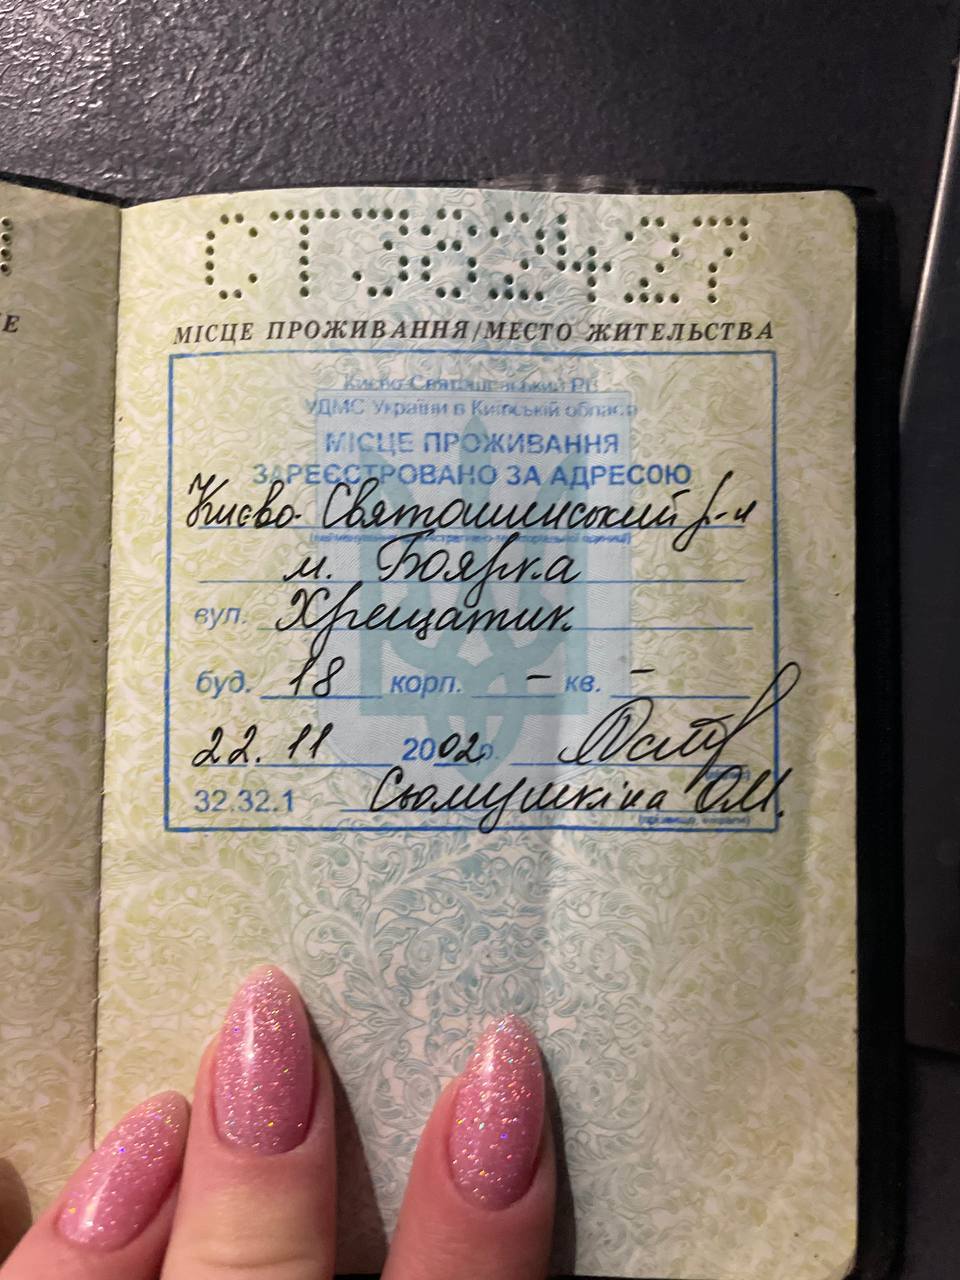 СТ382427
Е
МІСЦЕ ПРОЖИВАННЯ/МЕСТО ЖИТЕЛЬСТВА
Києво-Святошинський РВ
УДМС України в Київській області
МІСЦЕ ПРОЖИВАННЯ
ЗАРЕЄСТРОВАНО ЗА АДРЕСОЮ
Києво-Святошинський р-н
м. Боярка
вул. Хрещатик
буд. 18 корп. – кв. –
22.11 2002р.
32.32.1 Сьомушкіна О.М.
(прізвище, ініціали)